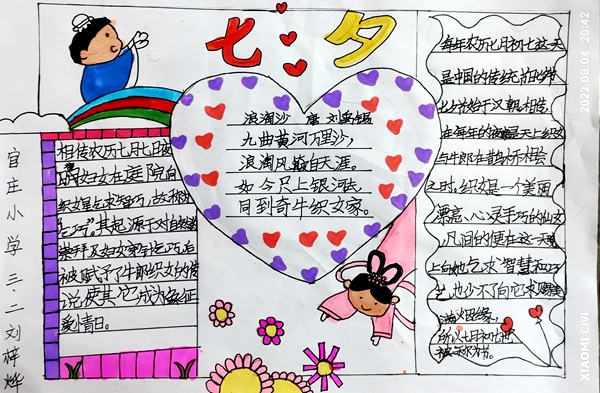 七夕
官庄小学三.二刘梓烨
相传农历七月七日夜
妇女在庭院向
织女星乞求智巧,故称为
“乞巧”。其起源于对自然的
崇拜及妇女穿针乞巧,后
被赋予了牛郎织女的传
说使其它成为象征
爱情日。
浪淘沙 唐 刘禹锡
九曲黄河万里沙,
浪淘风簸自天涯。
如今只上银河去,
同到牵牛织女家。
每年农历七月初七这一天
是中国的传统节日七夕
七夕始于汉朝相传,
在每年的这天织女
与牛郎在鹊桥相会
之时,织女是一个美丽
漂亮、心灵手巧的仙女
凡间的便在这一天晚
上向她乞求智慧和巧
艺,也少不了向它求赐美
满姻缘,
所以七月初七也
被称为
XIAOMI CIVI
2022.08.04 20:42